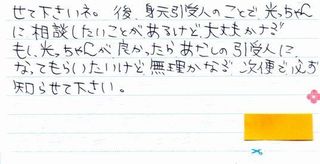 せて下さいネ。後、身元引受人のことで光っちゃん
に相談したいことがあるけど大丈夫かナ?
もし、光っちゃんが良かったらあだしの引受人に
なってもらいたいけど無理かな? 次便で必ず
知らせて下さい。